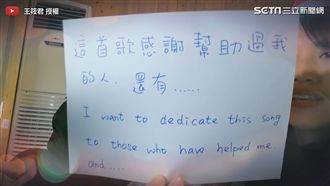 王筱君 授權
SETN 三立新聞網
這首歌感謝幫助過我
的人，還有……
I want to dedicate this song
to those who have helped me
and....